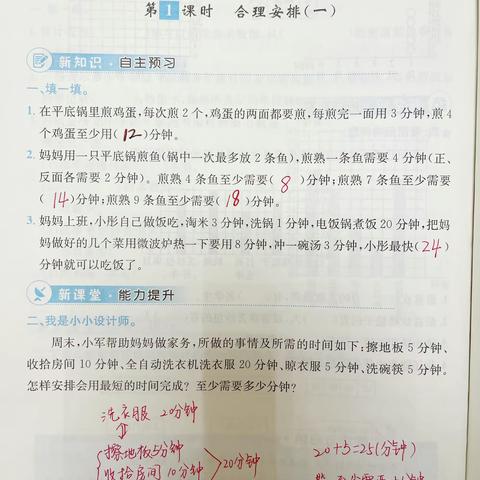 第1课时 合理安排(一)
新知识·自主预习
一、填一填。
1. 在平底锅里煎鸡蛋,每次煎2个,鸡蛋的两面都要煎,每煎完一面用3分钟,煎4
个鸡蛋至少用(12)分钟。
2. 妈妈用一只平底锅煎鱼(锅中一次最多放2条鱼),煎熟一条鱼需要4分钟(正、
反面各需要2分钟)。煎熟4条鱼至少需要(8)分钟;煎熟7条鱼至少需要
(14)分钟;煎熟9条鱼至少需要(18)分钟。
3. 妈妈上班,小彤自己做饭吃,淘米3分钟,洗锅1分钟,电饭锅煮饭20分钟,把妈
妈做好的几个菜用微波炉热一下要用8分钟,冲一碗汤3分钟,小彤最快(24)
分钟就可以吃饭了。
新课堂·能力提升
二、我是小小设计师。
周末,小军帮助妈妈做家务,所做的事情及所需的时间如下:擦地板5分钟、
收拾房间10分钟、全自动洗衣机洗衣服20分钟、晾衣服5分钟、洗碗筷5分钟。
怎样安排会用最短的时间完成?至少需要多少分钟?
洗衣服 20分钟
擦地板5分钟
收拾房间10分钟 20分钟
20+5=25(分钟)